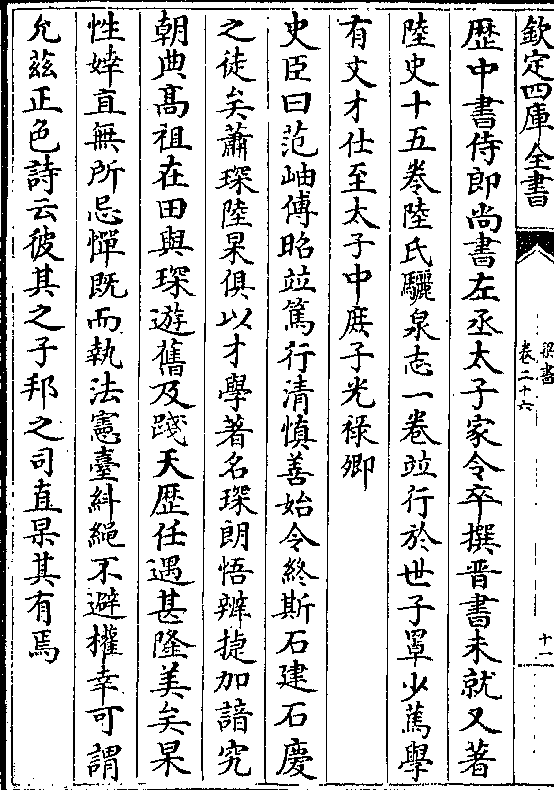 欽定四庫全書
梁書
卷二十六
十一
歴中書侍郎尚書左丞太子家令卒撰晉書未就又著
陸史十五卷陸氏驪泉志一卷竝行於世子罩少篤學
有文才仕至太子中庶子光祿卿
史臣曰范岫傅昭竝篤行清慎善始令終斯石建石慶
之徒矣蕭琛陸杲俱以才學著名琛朗悟辨捷加諳究
朝典髙祖在田與琛遊舊及踐天歴任遇甚隆美矣杲
性婞直無所忌憚既而執法憲臺糾繩不避權幸可謂
允兹正色詩云彼其之子邦之司直杲其有焉